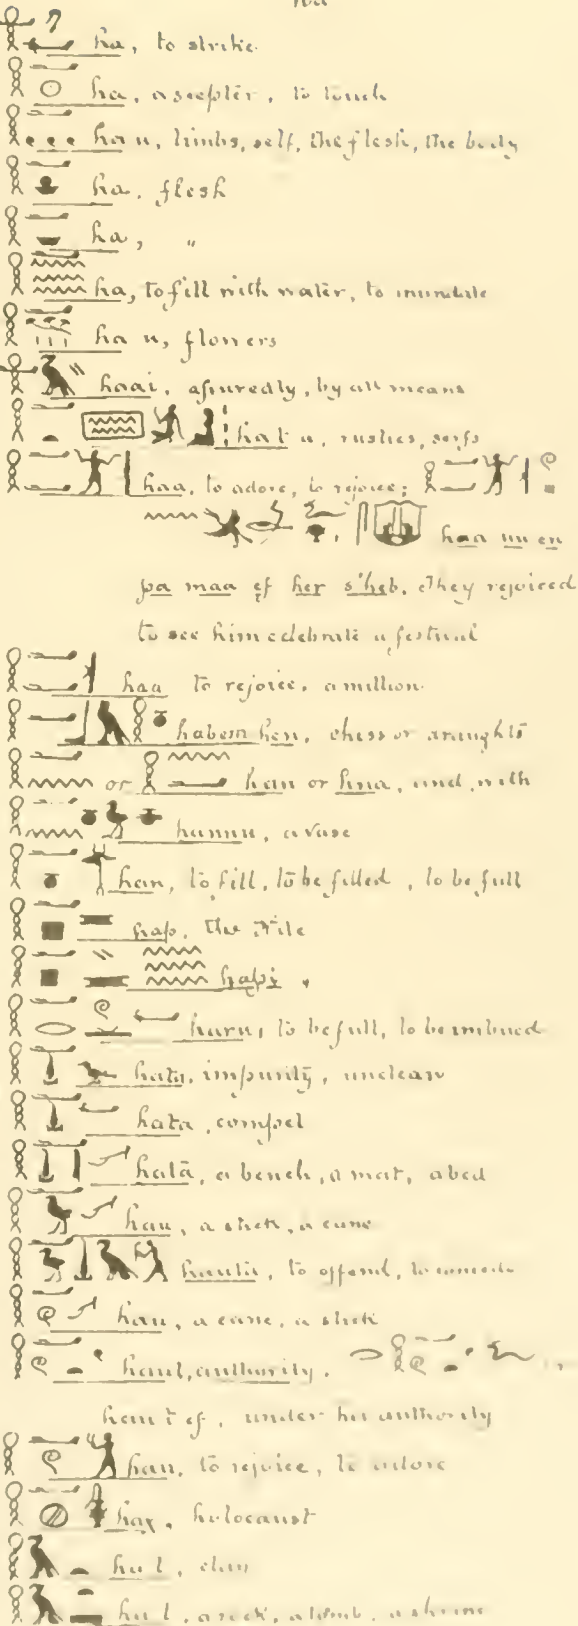 ha, to strike.
ha, a scepter, to touch
ha u, limbs, self, the flesh, the body
ha, flesh
ha, "
ha, to fill with water, to inundate
ha u, flowers
haai, assuredly, by all means
hat u, rustics, serfs
haa, to adore, to rejoice;
haa nu en
pa maa ef her s'heb. they rejoiced
to see him celebrate a festival
haa to rejoice, a million.
habem hen, chess or draughts
han or hna, and, with
hannu, a vase
han, to fill, to be filled, to be full
hap, the Nile
hapi "
haru, to be full, to be imbued
hata, impurity, unclean
hata, compel
hatā, a bench, a mat, a bed
hau, a stick, a cane
hauta, to offend, to
hau, a cane, a stick
haut, authority.
haut ef, under his authority
hau, to rejoice, to adore
haχ, holocaust
ha t,
ha t, a rock, a tomb, a shrine